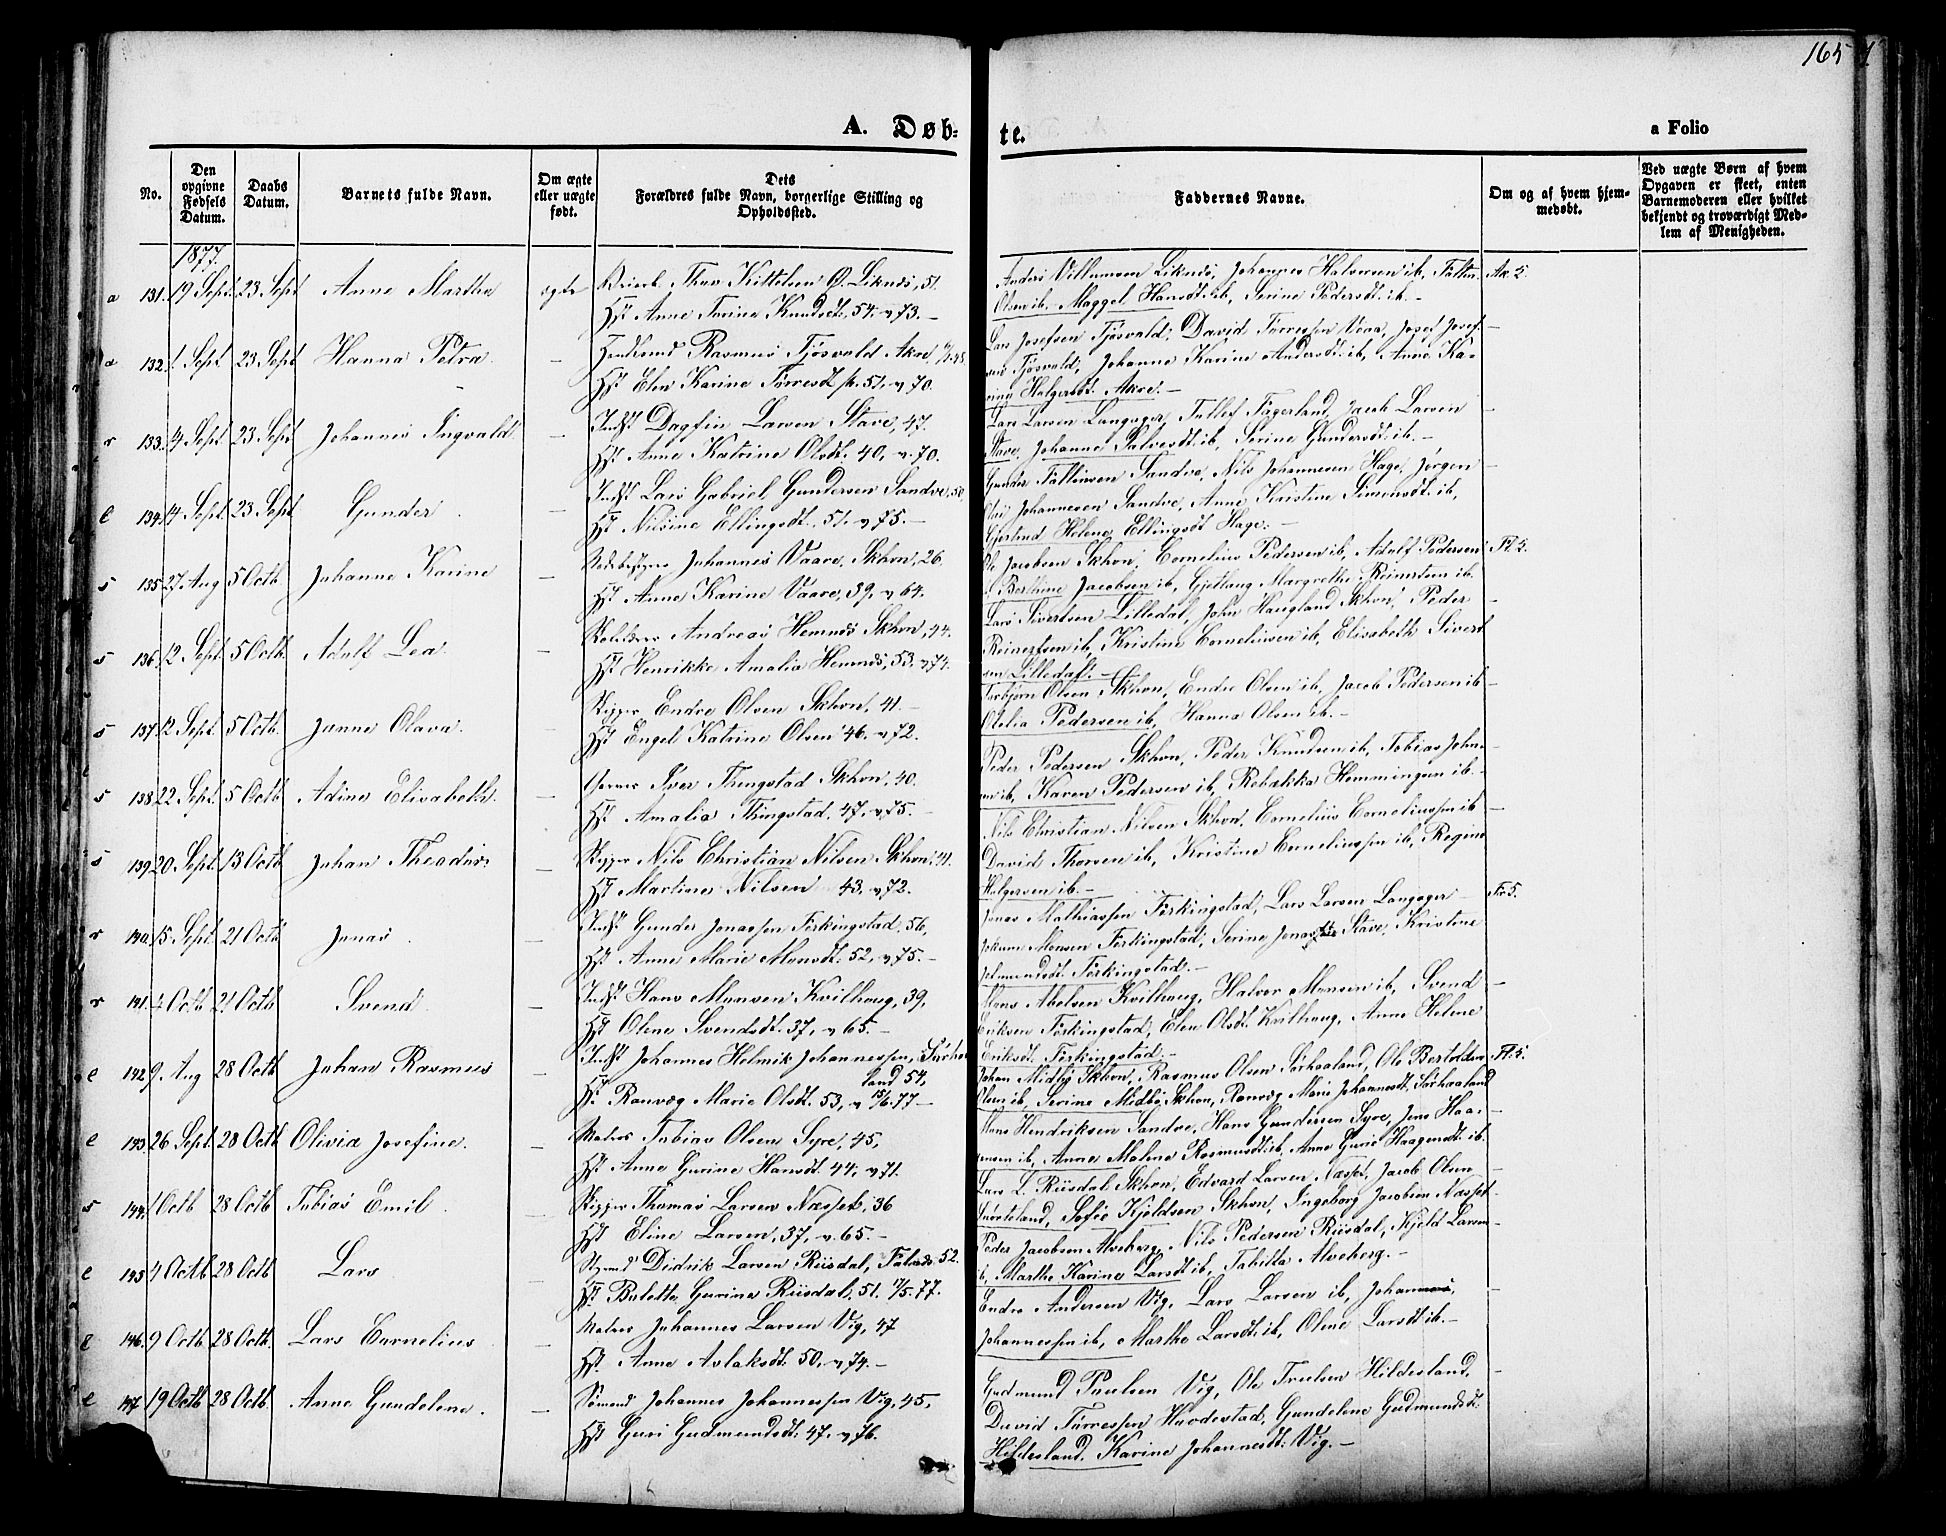 165
A. Døb-
te.
a Folio
No.
Den opgivne Fødsels Datum.
Daabs Datum.
Barnets fulde Navn.
Om ægte eller uægte født.
Dets Forældres fulde Navn, borgerlige Stilling og Opholdssted.
Faddernes Navne.
Om og af hvem hjemmedøbt.
Ved uægte Børn af hvem Opgaven er skeet, enten Barnemoderen eller hvilket bekjendt og troværdigt Medlem af Menigheden.
1877.
a 131. 19 Sept. 23 Sept Anne Martha ægte Thor Kittelsen Ø. Liknes, 51.
Hst Anne Serine Knudsdt, 54, v 73.—
Anders Villumsen Liknes, Johannes Halvorsen ib, Falten
Olsen ib. Maggel Hansdt. ib, Serine Pedersdt. ib.—
Ak. 5.
a 132. 1 Sept. 23 Sept Hanna Petra. — Rasmus Tjøsvald Akre, 48.
Hst Elen Karine Tørresdt 51. v 70.
Lars Josefsen Tjøsvald, David Tørressen Veaa, Josef Josef-
sen Tjøsvald, Johanne Karine Andersdt. ib, Anne Ka-
rine Holgersdt. Akre.—
r 133. 4 Sept. 23 Sept Johannes Ingvald — Indst Dagfin Larsen Stave, 47.
Hst Anne Katrine Olsdt. 40, v. 70.
Lars Larsen Langager, Tollef Fagerland, Jacob Larsen
Stave, Johanne Salvesdt. ib, Serine Gundersdt. ib.—
e 134. 14 Sept. 23 Sept Gunder. — Indst Lars Gabriel Gundersen Sandve, 50,
Hst Nilsine Ellingsdt. 51. v 75.—
Gunder Faltinsen Sandve, Nils Johannesen Hage, Jørgen
Johannesen Sandve, Anne Kristine Simonsdt. ib,
Gjertrud Helene Ellingsdt Hage.—
s 135 27 Aug 5 Octb. Johanne Karine — Johannes Vaare, Skhvn, 26.
Hst Anne Karine Vaare, 39, v 64.
Ole Jacobsen Skhvn, Cornelius Pedersen ib, Adolf Pedersen
Berthine Jacobsen ib, Gjetlaug Margrethe Reinertsen ib.
Fl. 5.
s 136. 12 Sept. 5 Octb. Adolf Lea. — Andreas Hemnes Skhvn, 44.
Hst Henrikke Amalia Hemnes, 53. v 74.
Lars Sivertsen Lilledal, John Haugland Skhvn, Peder
Reinertsen ib, Kristine Corneliusen ib, Elisabeth Sivert-
sen Lilledal.—
s 137 12 Sept. 5 Octb. Janne Olava. — Skipper Endre Olsen Skhvn, 41.
Hst Engel Katrine Olsen 46. v 72.
Torbjørn Olsen Skhvn, Endre Olsen ib, Jacob Pedersen ib
Otelia Pedersen ib, Hanna Olsen ib.—
s 138 22 Sept. 5 Octb Adine Elisabeth. — Iver Thingstad Skhvn, 40.
Hst Amalia Thingstad, 47, v 75.
Peder Pedersen Skhvn, Peder Knudsen ib, Tobias John-
sen ib, Karen Pedersen ib, Rebekka Hemmingsen ib.
s 139 20 Sept. 13 Octb Johan Theodor. — Skipper Nils Christian Nilsen Skhvn, 41.
Hst Martine Nilsen 43, v 72.
Nils Christian Nilsen Skhvn, Cornelius Corneliussen ib
David Thorsen ib, Kristine Corneliussen ib, Regine
Holgersen ib.—
r 140. 15 Sept. 21 Octb Jonas. — Indst Gunder Jonassen Ferkingstad, 56,
Hst Anne Marie Monsdt. 52, v 75.—
Jonas Mathiassen Ferkingstad, Lars Larsen Langager
Monsen Ferkingstad, Serine Jonasdt. Stave, Kristine
Ferkingstad.—
Fr 5.
r 141. 4 Octb 21 Octb Svend. — Indst Hans Monsen Kvilhaug, 39,
Hst Olene Svendsdt. 37, v 65.—
Mons Abelsen Kvilhaug, Halvor Monsen ib, Svend
Eriksen Ferkingstad, Elen Olsdt. Kvilhaug, Anne Helene
Eriksdt. Ferkingstad.—
e 142 9. Aug 28 Octb Johan Rasmus — Indst Johannes Helmik Johannessen, Sørhaa-
land 54,
Hst. Ranveg Marie Olsdt. 53, v 15/6. 77—
Johan Midbø Skhvn, Rasmus Olsen Sørhaaland, Ole Bertelsen
Olsen ib, Serine Midbø, Skhvn, Ranveg Marie Johannesdt. Sørhaaland
Fl. 5.
e 143 26 Sept. 28 Octb Olivia Josefine. — Matros Tobias Olsen Syre, 45,
Hst Anne Gurine Hansdt. 44, v 71.
Mons Hendriksen Sandve, Hans Gundersen Syre, Jens Haa-
gensen ib, Anne Malene Rasmusdt. ib, Anne Gurie Haagensdt. ib.
s 144. 1 Octb 28 Octb Tobias Emil. — Skipper Thomas Larsen Næsset, 36
Hst Eline Larsen, 37, v. 65.—
Lars L. Riisdal Skhvn, Edvard Larsen Næsset, Jacob Olsen
Snørteland, Sofie Kjeldsen Skhvn, Ingeborg Jacobsen Næsset
e 145 4 Octb 28 Octb Lars — Didrik Larsen Riisdal, Falnes 52.
Hst. Bolette Gurine Riisdal, 51. 77.
Peder Jacobsen Alveberg, Nils Pedersen Riisdal, Kjeld Larsen
ib, Marthe Karine Larsdt ib, Tabitta Alveberg.—
e 146. 9 Octb 28 Octb. Lars Cornelius — Matros Johannes Larsen Vig, 47
Hst. Anne Aslaksdt. 50, v 74.—
Endre Andersen Vig, Lars Larsen ib, Johannes
Johannessen ib, Marthe Larsdt. ib, Olene Larsdt ib.—
e 147 19 Octb 28 Octb. Anne Gundelene. — Sømand Johannes Johannessen Vig, 45,
Hst Guri Gudmundsdt. 47, v 76.
Gudmund Paulsen Vig, Ole Truelsen Hildesland,
David Tørressen Havdestad, Gundelene Gudmundsdt.
Hildesland, Karine Johannesdt. Vig.—